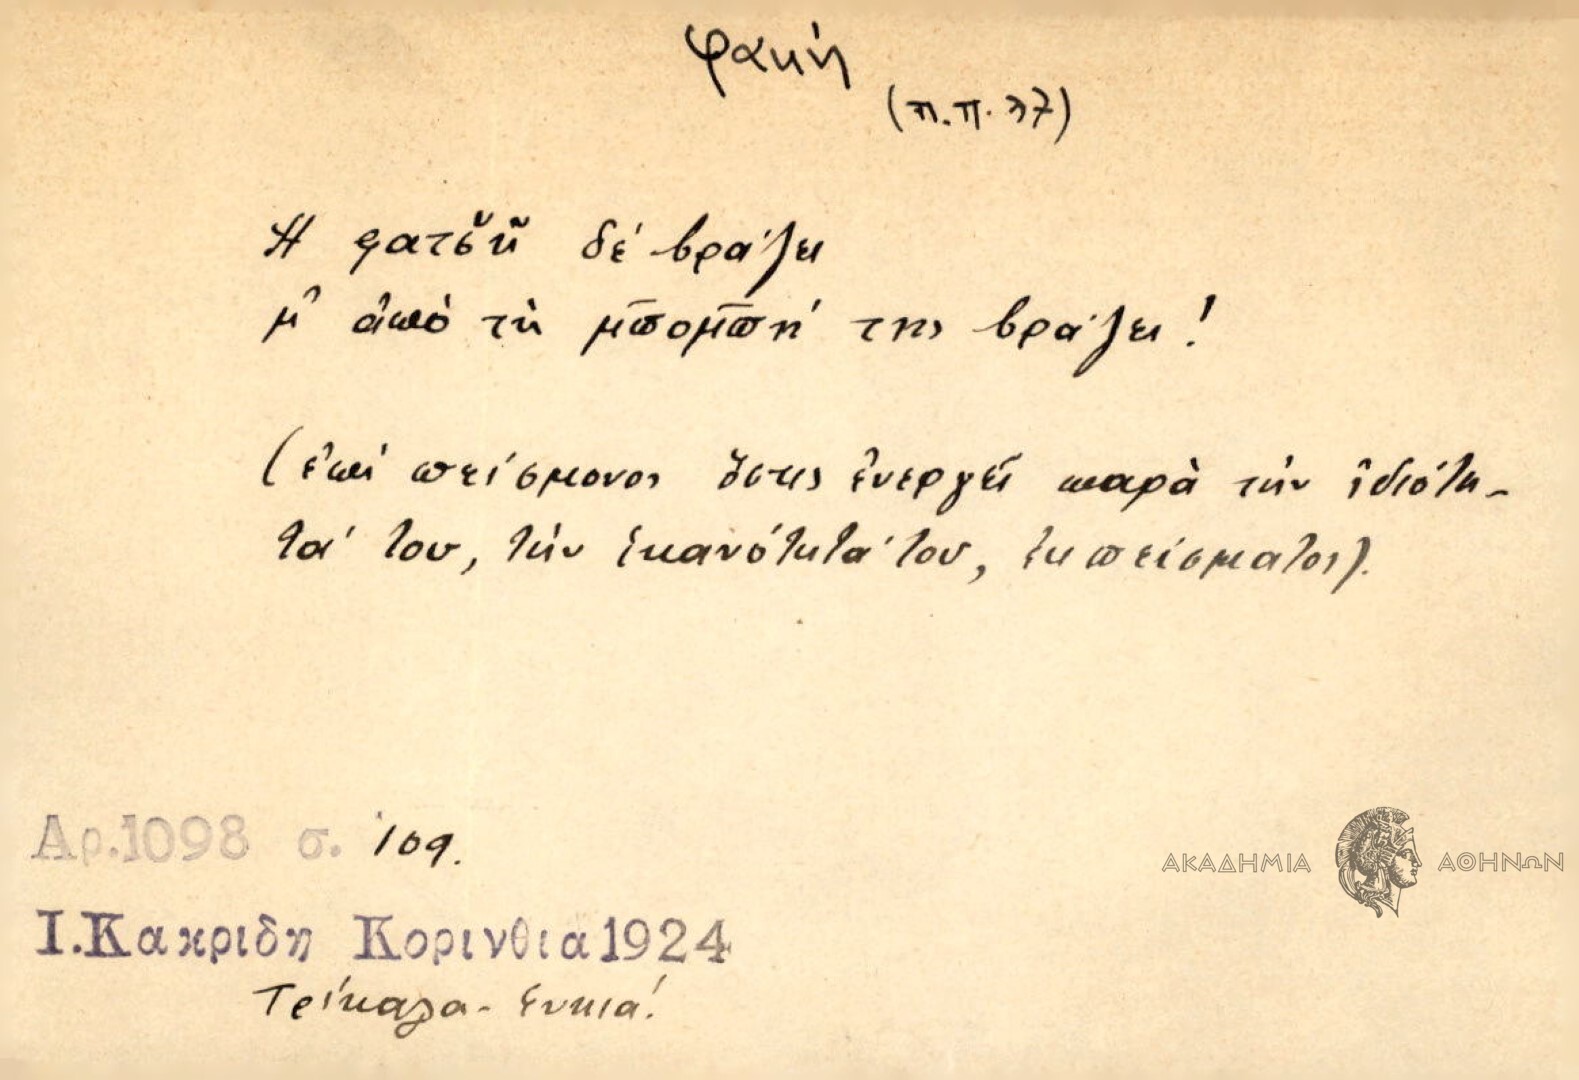 φακή
(π.π. 37)
Ἡ φατσ̆ῆ δέ βράζει
μ' ἀπὸ τὴ μπομπή της βράζει!
(ἐπί πείσμονος ὅστις ἐνεργεῖ παρὰ τὴν ἰδιότη-
τά του, τὴν ἱκανότητά του, ἐκ πείσματος).
Αρ.1098 σ. 109.
Ι.Κακριδη Κορινθια 1924
Τρίκαλα -
ΑΚΑΔΗΜΙΑ ΑΘΗΝΩΝ